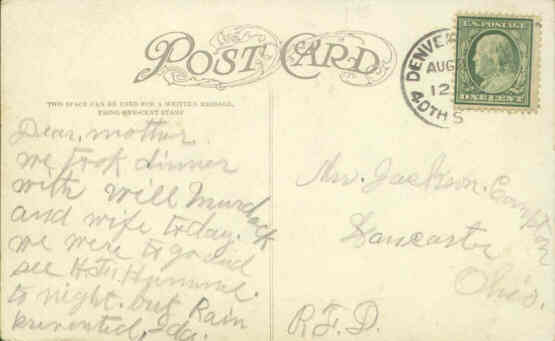 POST CARD
THIS SPACE CAN BE USED FOR A WRITTEN MESSAGE,
USING ONE-CENT STAMP
Dear mother
we took dinner
with Will Murdock
and wife today.
we were to go and
see H.F. Humme.
to night. but Rain
prevented,
DENVE
AUG
12
40TH S
U.S. POSTAGE
ONE CENT
Mrs. Jackson Compton
Lancaster
Ohio.
R.F.D.